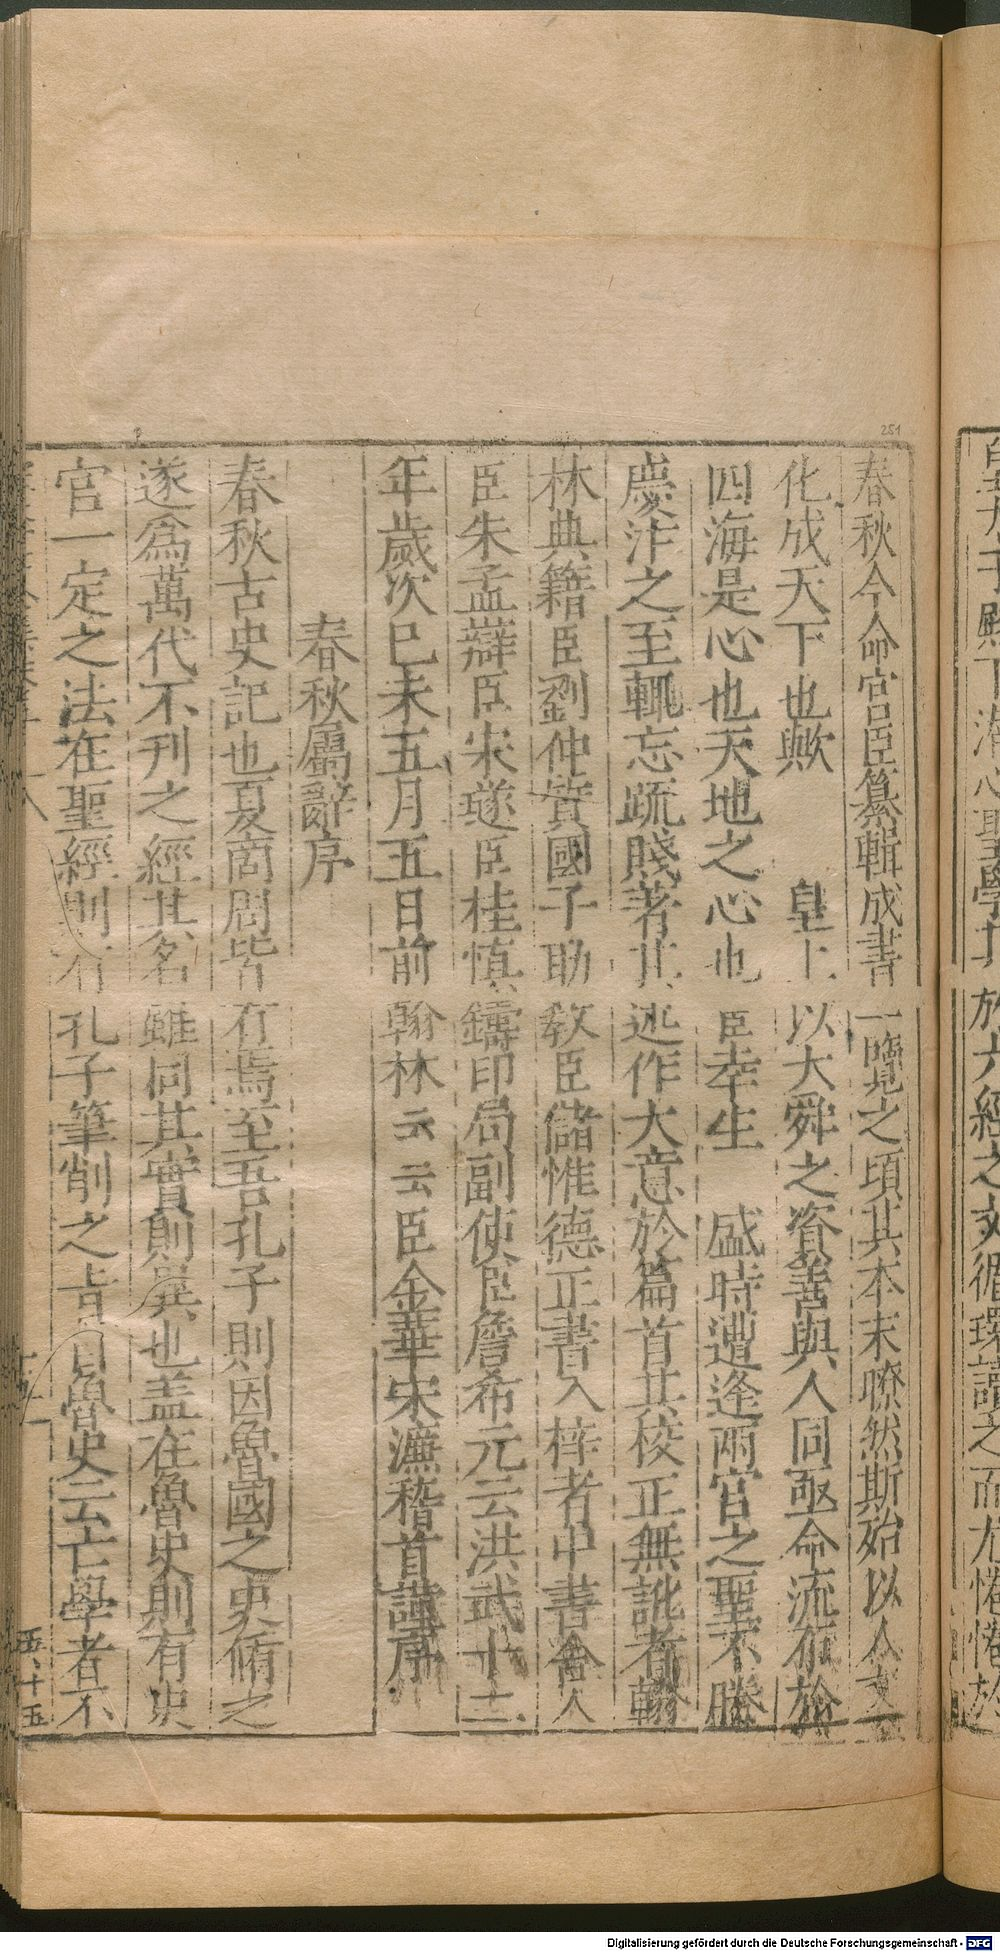 於六經之文循環讀之而尤惓惓於
春秋今命宮臣纂輯成書一覽之頃其本末瞭然斯殆以人文
化成天下也歟 皇上以大舜之資善與人同亟命流布於
四海是心也天地之心也臣幸生 盛時遭逢兩宮之聖不勝
慶泎之至輒忘疏賤著其述作大意於篇首其校正無訛者翰
林典籍臣劉仲質國子助教臣儲惟德正書入梓者中書舍人
臣朱孟辯臣宋璲臣桂慎鑄印局副使臣詹希元云洪武十二
年歲次巳未五月五日前翰林云云臣金華宋濂稽首謹序
春秋屬辭序
春秋古史記也夏商周皆有焉至吾孔子則因魯國之史脩之
遂爲萬代不刊之經其名雖同其實則異也盖在魯史則有史
官一定之法在聖經則有孔子筆削之旨自魯史云亡學者不
251
Digitalisierung gefördert durch die Deutsche Forschungsgemeinschaft - DFG